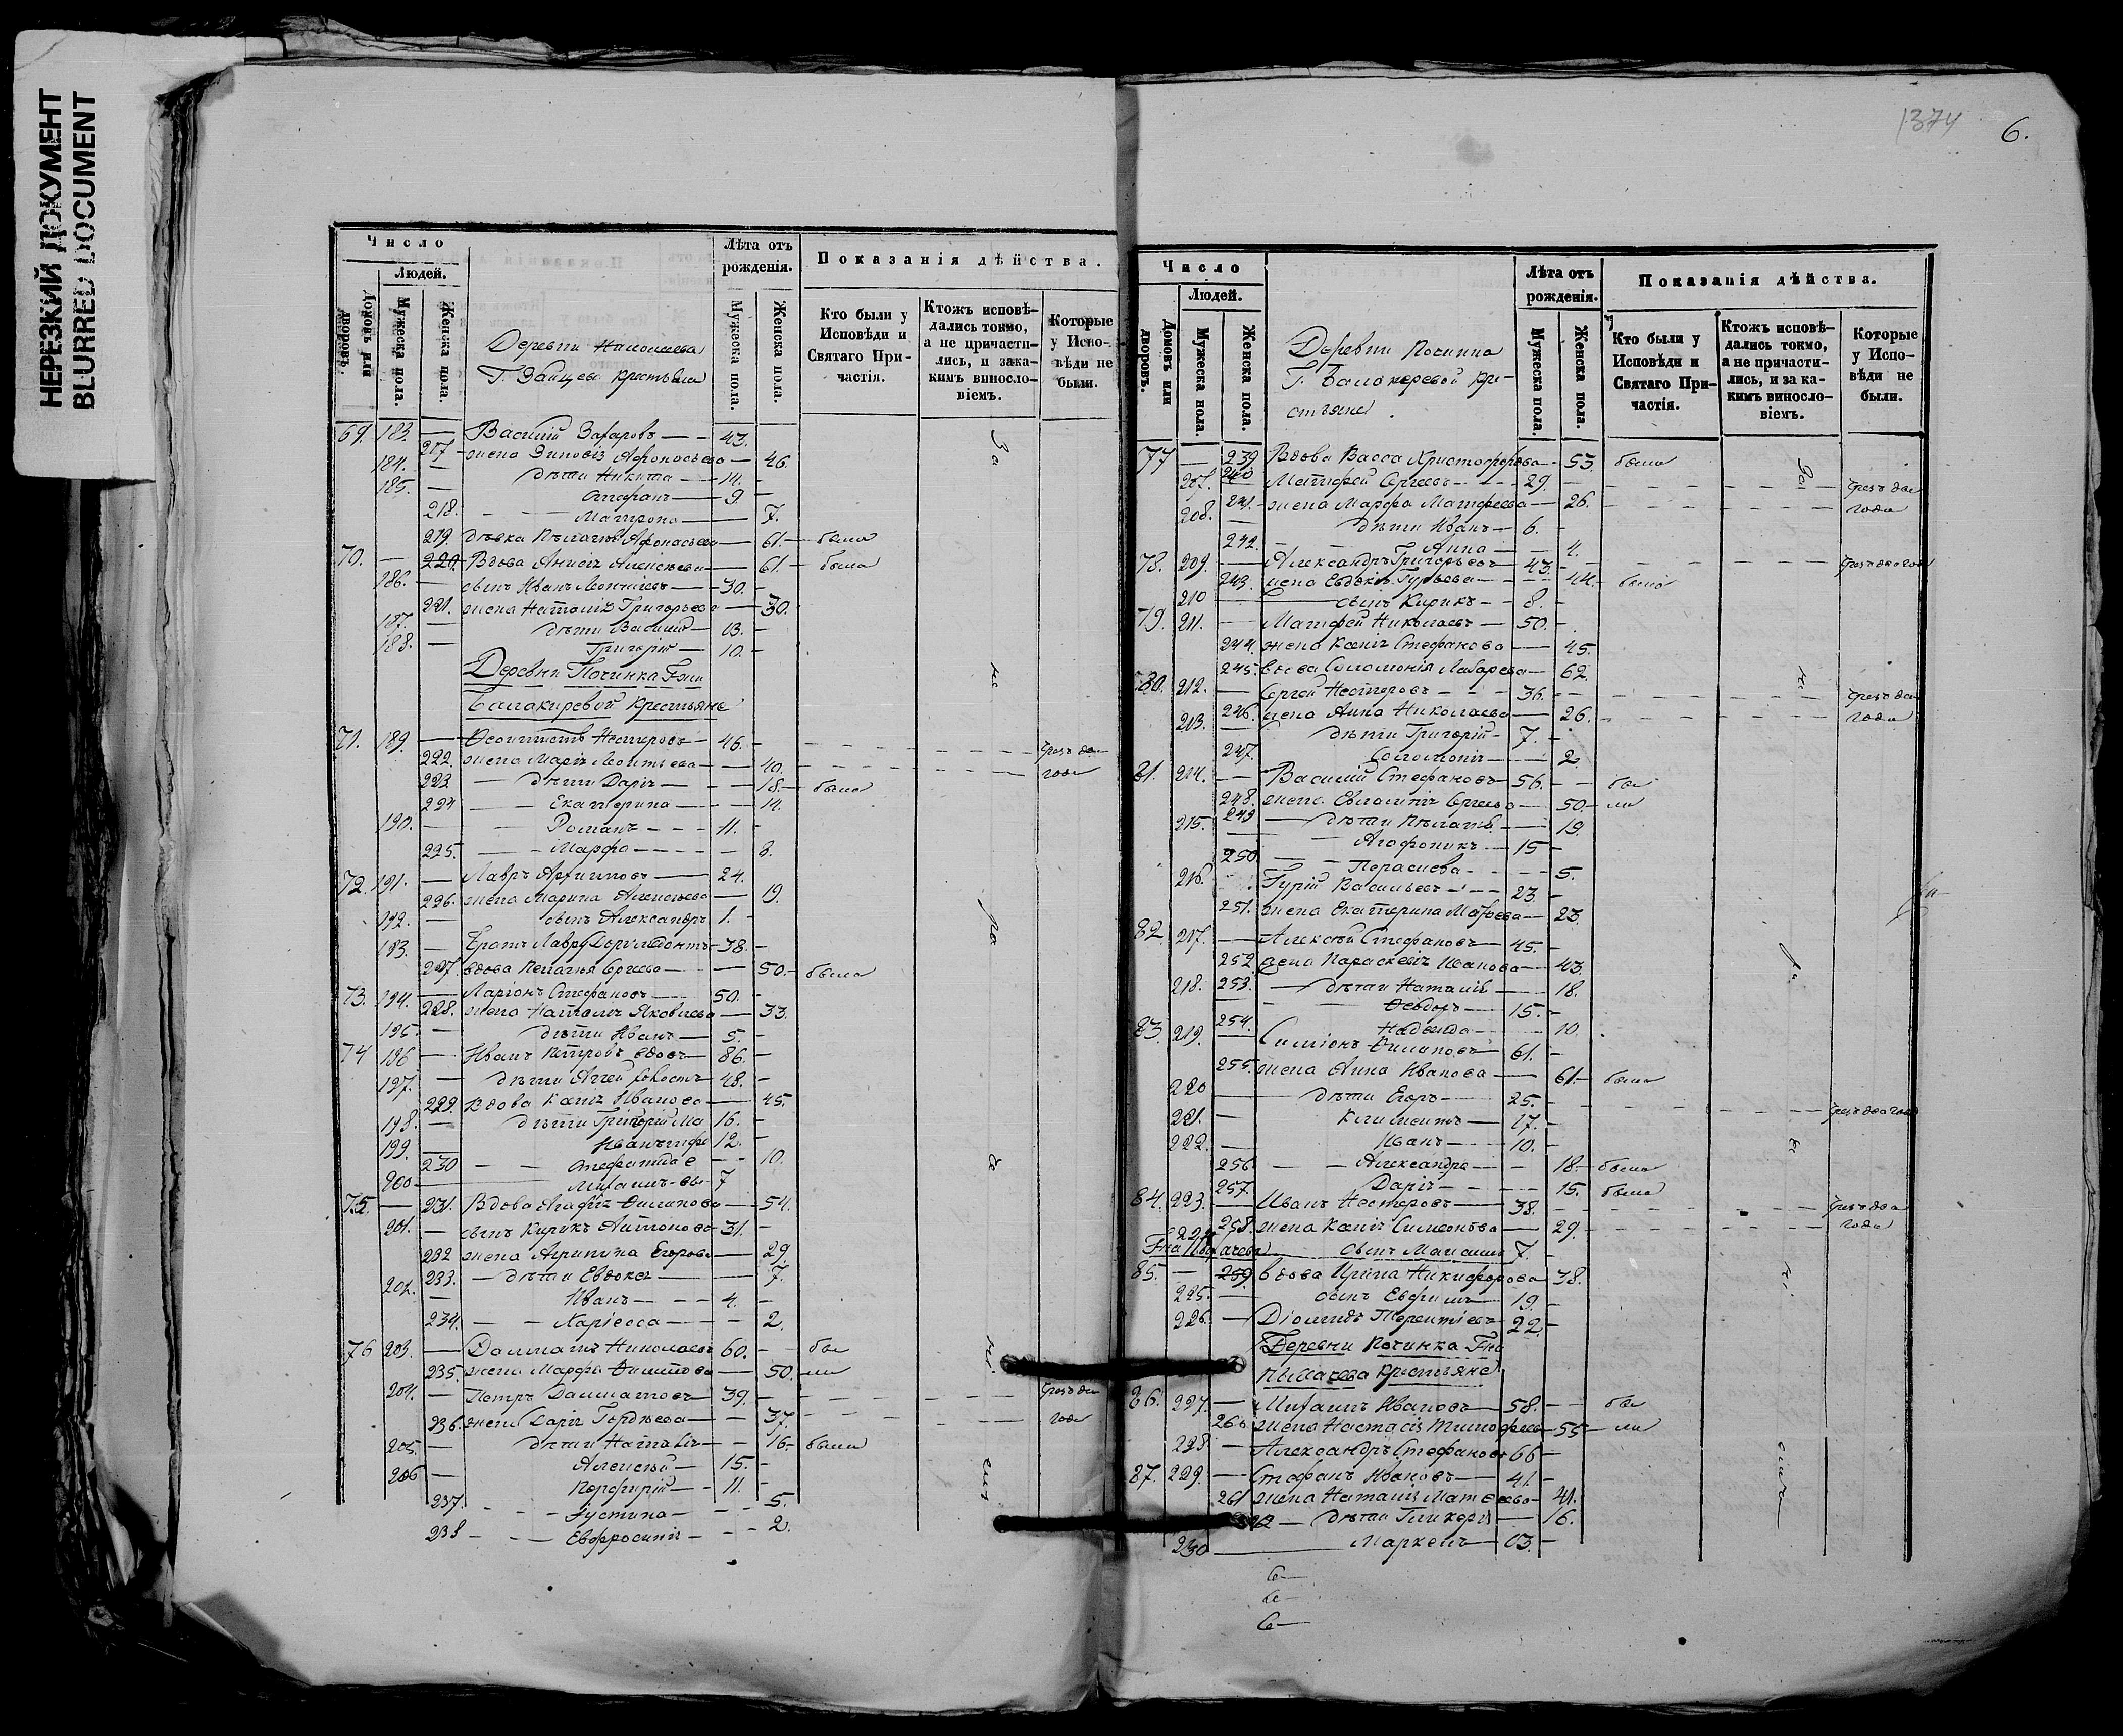 НЕРЕЗКИЙ ДОКУМЕНТ
BLURRED DOCUMENT
Число
Людей.
Домовъ или дворовъ.
Мужеска пола.
Женска пола.
Деревни
Г. Зайцева крестьяне
Лѣта отъ рожденія.
Мужеска пола.
Женска пола.
Показанія дѣйства.
Кто были у Исповѣди и Святаго Причастія.
Ктожъ исповѣдались токмо, а не причастились, и за какимъ винословіемъ.
Которые у Исповѣди не были.
69. 183. — Василій Захаровъ — 43.
217 — жена Зиновія Афонасьева — 46.
184. — дѣти Никита — 14.
185. — Стефанъ — 9
218. Матрона — 7.
219. дѣвка Пелагія Афонасьева — 61 — была
70. — 220. Вдова Алексѣева — 61 — была
186. — сынъ Иванъ — 30.
221. жена Наталія Григорьева — 30.
187. — дѣти Василій — 13.
188. — Григорій — 10.
Деревни Починка Гжи
Балакиревой крестьяне
71. 189. — Феоктистъ Нестеровъ — 46. чрезъ два
222. жена Марія Леонтьева — 40. года
223 — дѣти Дарія — 18. — была
224 — Екатерина — 14.
190. — Романъ — 11.
225. — Марфа — 8.
72. 191. — Лавръ Архиповъ — 24.
226. жена Марина Алексѣева — 19.
192. — сынъ Александръ 1.
193. — Братъ Лавра Доримедонтъ — 38.
227. вдова Пелагія Сергѣева — 50. — была
73. 194. — Ларіонъ Стефановъ — 50.
228. жена Наталія Яковлева — 33.
195 — дѣти Иванъ — 5.
74 196 — Иванъ Петровъ вдовъ — 86.
197. — дѣти Аггей холостъ 48.
229. Вдова Ксенія Иванова — 45.
198. — дѣти Григорій 16.
199. — Иванъ 12.
230 — Стефанида — 10.
200 — Михаилъ 7
75. — 231. Вдова Агафія Филипова — 54.
201. — сынъ Кирикъ Антоновъ 31.
232 жена Агрипина Егорова — 29.
233. — дѣти Евдокія — 7.
202. — Иванъ — 4.
234. — Харіесса — 2.
76 203. — Далматъ Николаевъ 60. — бы
235. жена Марфа Филипова — 50. — ли
204. — Петръ Далматовъ — 39. чрезъ два
236. жена Дарія Гордѣева — 37. года
205. — дѣти Наталія — 16 — была
Алексѣй — 15.
206 — Порфирій — 11.
237. — Іустина — 5.
238 — Евфросинія — 2.
За
не
ро
де
ні
емъ
1374
6.
Число
Людей.
Домовъ или дворовъ.
Мужеска пола.
Женска пола.
Деревни Починка
Г. Балакиревой кре-
стьяне.
Лѣта отъ рожденія.
Мужеска пола.
Женска пола.
Показанія дѣйства.
Кто были у Исповѣди и Святаго Причастія.
Ктожъ исповѣдались токмо, а не причастились, и за какимъ винословіемъ.
Которые у Исповѣди не были.
77 — 239 Вдова Васса Христофорова — 53. была
207. 240 Матфей Сергѣевъ — 29. чрезъ два
241. жена Марфа Матфеева — 26. года
208. — дѣти Иванъ — 6.
242. Анна — 4.
78. 209. — Александръ Григорьевъ 43. чрезъ два года
243. жена Евдокія Гурьева — 44. была
210 — сынъ Кирикъ — 8.
79. 211. — Матфей Николаевъ — 50.
244. жена Ксенія Стефанова — 45.
245. вдова Соломонія Лазарева — 62.
80. 212. — Сергѣй Нестеровъ — 36. чрезъ два
246. жена Анна Николаева — 26. года
213. — дѣти Григорій — 7.
247. Соломонія — 2
81. 214. — Василій Стефановъ 56. — бы
248. жена Евлампія Сергѣева — 50. — ли
249 — дѣти Пелагія — 19.
215. — Агафоникъ — 15
250 — Параскева — 5.
216. Гурій Васильевъ — 23.
251. жена Екатерина Матвѣева — 23.
82 217. — Алексѣй Стефановъ — 45.
252 жена Параскевія Иванова — 43.
253. — дѣти Наталія — 18.
218. — Феодоръ — 15.
254. Надежда — 10.
83. 219. — Симіонъ Филиповъ — 61.
255. жена Анна Иванова — 61. — была
220 — дѣти Егоръ — 25. чрезъ два года
221. — Климентъ — 17.
222. — Иванъ — 10.
256. — Александра — 18 — была
257. Дарія — 15. была
84. 223. — Иванъ Нестеровъ — 38. чрезъ два
258. жена Ксенія Симеонова — 29. года
224. сынъ 7.
85. — 259 вдова Ирина Никифорова 38.
225. — сынъ Евфимъ — 19.
226. — Діомидъ Терентіевъ 22.
Деревни Починка Гна
крестьяне
86. 227. — Михаилъ Ивановъ — 58. — бы
260 жена Настасія Тимофеева — 55 — ли
228 — Александръ Стефановъ 66
87. 229. — Стефанъ Ивановъ — 41.
261 жена Наталія Матвеева — 41.
262 — дѣти Гликерія — 16.
230 — Маркелъ — 13.
За